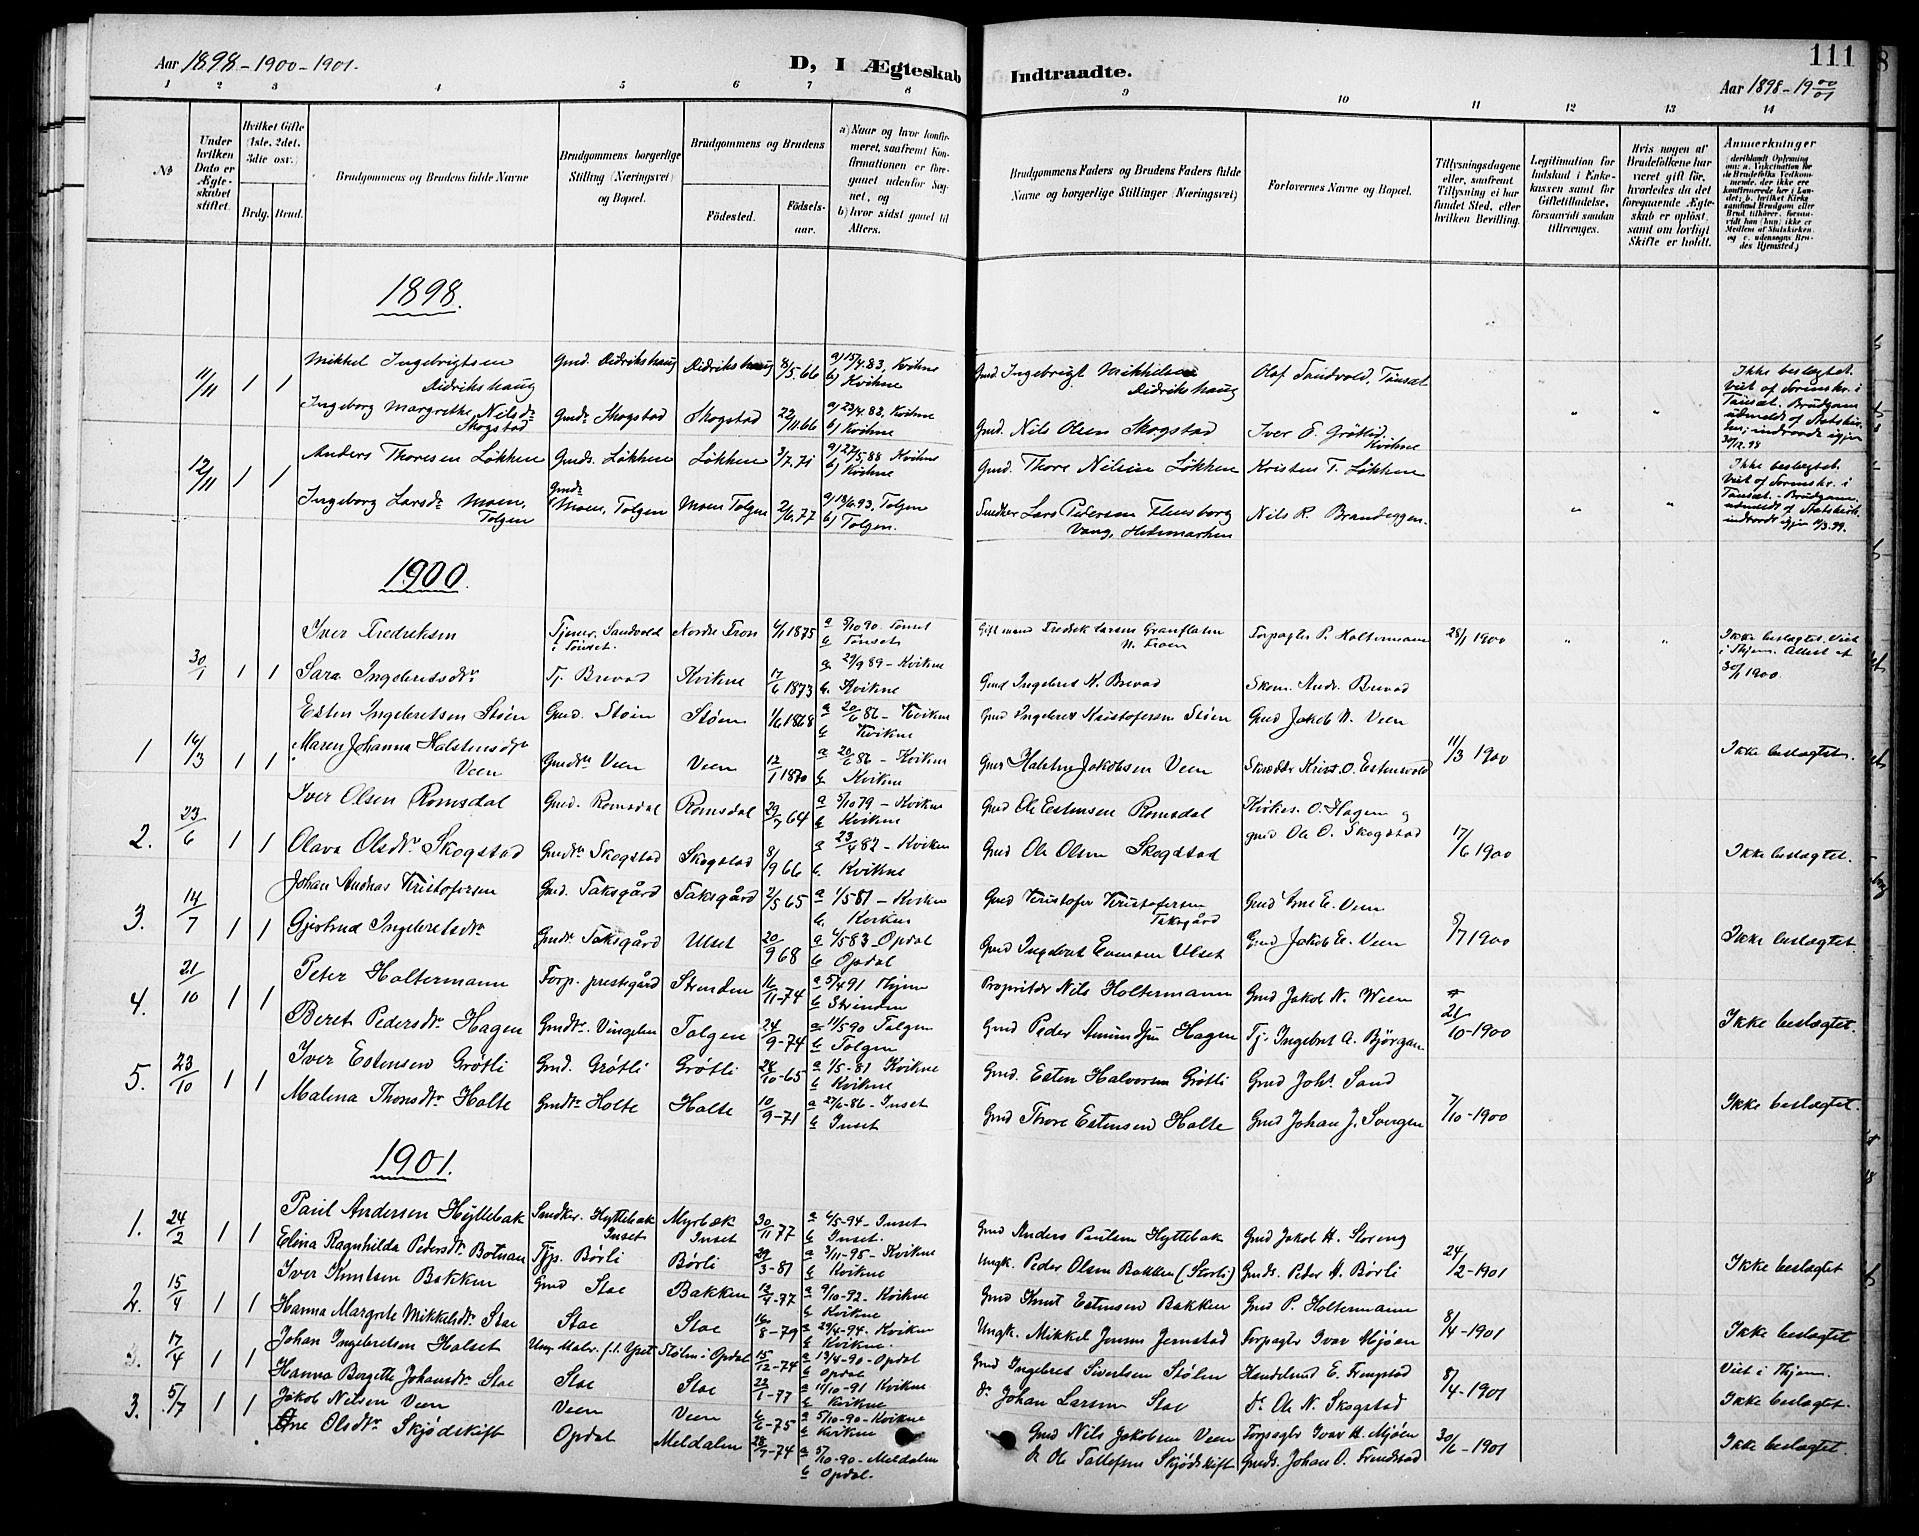 Aar 1898 - 1900 - 1901.
D, I Ægteskab Indtraadte.
111
Aar 1898 - 1900/01
1 2 3 4 5 6 7 8 9 10 11 12 13 14
No
Under hvilken Dato er Ægteskabet stiftet.
Hvilket Gifte (1ste, 2det, 3die osv.)
Brdg. Brud.
Brudgommens og Brudens fulde Navne
Brudgommens borgerlige Stilling (Næringsvei) og Bopæl.
Brudgommens og Brudens
Fødested. Fødselsaar.
a) Naar og hvor konfirmeret, saafremt Konfirmationen er foregaaet udenfor Sognet, og
b) hvor sidst gaaet til Alters.
Brudgommens Faders og Brudens Faders fulde Navne og borgerlige Stillinger (Næringsvei)
Forlovernes Navne og Bopæl.
Tillysningsdagene eller, saafremt Tillysning ei har fundet Sted, efter hvilken Bevilling.
Legitimation for Indskud i Enkekassen samt for Giftetilladelse, forsaavidt saadan tiltrænges.
Hvis nogen af Brudefolkene har været gift før, hvorledes da det foregaaende Ægteskab er opløst, samt om lovligt Skifte er holdt.
Anmerkninger
1898.
11/11 1 1 Mikkel Ingebrigtsen Didrikshaug Gmd. Didrikshaug Didrikshaug 8/5.66 a) 15/4.83, Kvikne b) Kvikne Gmd Ingebrigt Mikkelsen Didrikshaug Olaf Sandvold, Tönset Ikke beslegtet.
Ingeborg Margrethe Nilsdr Skogstad Gmdr Skogstad Skogstad 22/11.66 a) 23/4.82, Kvikne b) Kvikne Gmd. Nils Olsen Skogstad Iver E. Gröttli, Kvikne " "
12/11 1 1 Anders Thoresen Løkken Gmds. Løkken Løkken 3/7.71 a) 27/5.88 Kvikne b) Kvikne Gmd. Thore Nilsen Løkken Kristen T. Løkken Ikke beslegtet.
Ingeborg Larsdr Moen, Tolgen Gmdr Moen, Tolgen Moen Tolgen 2/6.77 a) 18/6.93, Tolgen b) Tolgen. Snedker Lars Pedersen Flensborg Vang, Hedemarken Nils R. Brandeggen. " "
1900.
Iver Fredriksen Tjener. Sandvold i Tönset. Nordre Fron 6/1 1875 a 5/10 90 - Tönset b Tönset Giftmand Fredrik Larsen Granflaten N. Froen Forpagter P. Holtermann 28/1 1900 " " Ikke beslegtet. Viet i Thjem. Attest af 30/1 1900.
30/1 1 1 Sara Ingebretsdtr. Tj. Brevad Kvikne 17/6 1873 a. 29/9 89 - Kvikne b. Kvikne Gmd Ingebret N. Brevad Skom. Andr. Brevad
Esten Ingebretsen Støen Gmd. Støen Støen 1/6 1868 a 20/6 86 - Kvikne b Kvikne Gmd Ingebret Kristofersen Støen Gmd Jakob N. Veen
1 16/3 1 1 Maren Johanna Halstensdtr Veen Gmdtr Veen Veen 12/1 1870 a 20/6 86 - Kvikne b Kvikne Gmd Halsten Jakobsen Veen Skrædder Krist. O. Estensvold 11/3 1900 Ikke beslægtet.
Iver Olsen Romsdal Gmd. Romsdal Romsdal 29/7 64 a 5/10 79 - Kvikne b Kvikne Gmd Ole Estensen Romsdal Kirkes. O. Hagen og
2. 23/6 1 1 Olava Olsdtr Skogstad Gmdtr Skogstad Skogstad 8/9 66 a 23/4 82 - Kvikne b. Kvikne Gmd Ole Olsen Skogstad gmd Ole O. Skogstad 17/6 1900 Ikke beslægtet.
Johan Andreas Kristofersen Gmd. Taksgård Taksgård 2/5 65 a 1/5 81 - Kvikne b. Kvikne Gmd Kristofer Kristofersen Taksgård Gmd Arne E. Veen
3. 14/7 1 1 Gjertrud Ingebretsdtr Gmdtr Taksgård Ulset 20/9 68 a 4/5 83 - Opdal b Opdal Gmd Ingebret Evensen Ulset Gmd Jakob E. Veen 8/7 1900 Ikke beslægtet.
4. 21/10 1 1 Peter Holtermann Forp. prestegård Strinden 16/11-74 a 5/4 91 Thjem b Strinden Proprietær Nils Holtermann Gmd Jakob N. Ween
Beret Pedersdtr Hagen Gmdtr. Vingelen Tolgen 24/9-74 a 11/5 90 Tolgen b Tolgen Gmd Peder Hagen Tj. Ingebret A. Bjørgan 21/10-1900 Ikke beslægtet.
5. 23/10 1 1 Iver Estensen Grøtli Gmd. Grøtli Grøtli 24/10-65 a 1/5-81 Kvikne b Kvikne Gmd. Esten Halvorsen Grøtli Gmd Johs. Sand
Malena Thorsdtr Holte Gmdtr Holte Holte 10/9-71 a 27/6-86 - Inset b Inset Gmd Thore Estensen Holte Gmd Johan J. Svergen 7/10-1900 Ikke beslægtet.
1901.
1. 24/2 1 1 Paul Andersen Hyttebak Snedker. Hyttebak Inset Myrbæk Inset 30/11 77 a 6/5-94 - Inset b Inset. Gmd Anders Paulsen Hyttebak Gmd Jakob H. Storeng
Elena Ragnhilda Pedersdtr Botnan Tjp. Børli Børli 29/3-81 a 3/11-95 - Kvikne b Kvikne Ungk. Peder Olsen Bakken (Storli) Gmds. Peder H. Børli 24/2-1901 Ikke beslægtet
2. 15/4 1 1 Iver Knutsen Bakken Gmd Stae Bakken 12/4-77 a 9/10-92 - Kvikne b Kvikne Gmd Knut Estensen Bakken Gmd P. Holtermann
Hanna Margrete Mikkelsdtr. Stae Stae Stae 16/8-79 a 29/4-94 - Kvikne b Kvikne. Ungk. Mikkel Jonsen Jernstad Forpagter Ivar Mjøen 8/4-1901 Ikke beslægtet
3. 17/4 1 1 Johan Ingebretsen Holset Ung. Maler. f. t. Yset Stølen i Opdal 15/12-74 a 13/4-90 - Opdal b Opdal Gmd Ingebret Sivertsen Stølen Handelsmd E. Frengstad Viet i Thjem.
Hanna Bergitte Johansdtr Stae Stae Stae 22/1-77 a 11/10-91 Kvikne b Kvikne dr. Johan Larsen Stae dr. Ole N. Skogstad 8/4-1901 Ikke beslægtet.
3. 5/7 1 1 Jakob Nilsen Veen Veen Veen 6/6-75 a 5/10-90 - Kvikne b Kvikne Gmd Nils Jakobsen Veen Forpagter Ivar H. Mjøen
Ane Olsdtr Skjødskift Opdal Meldalen 28/7-74 a 5/10-90 - Meldalen b Opdal. Ole Tollefsen Skjødskift Gmds. Johan O. Frengstad 30/6-1901 Ikke beslægtet.